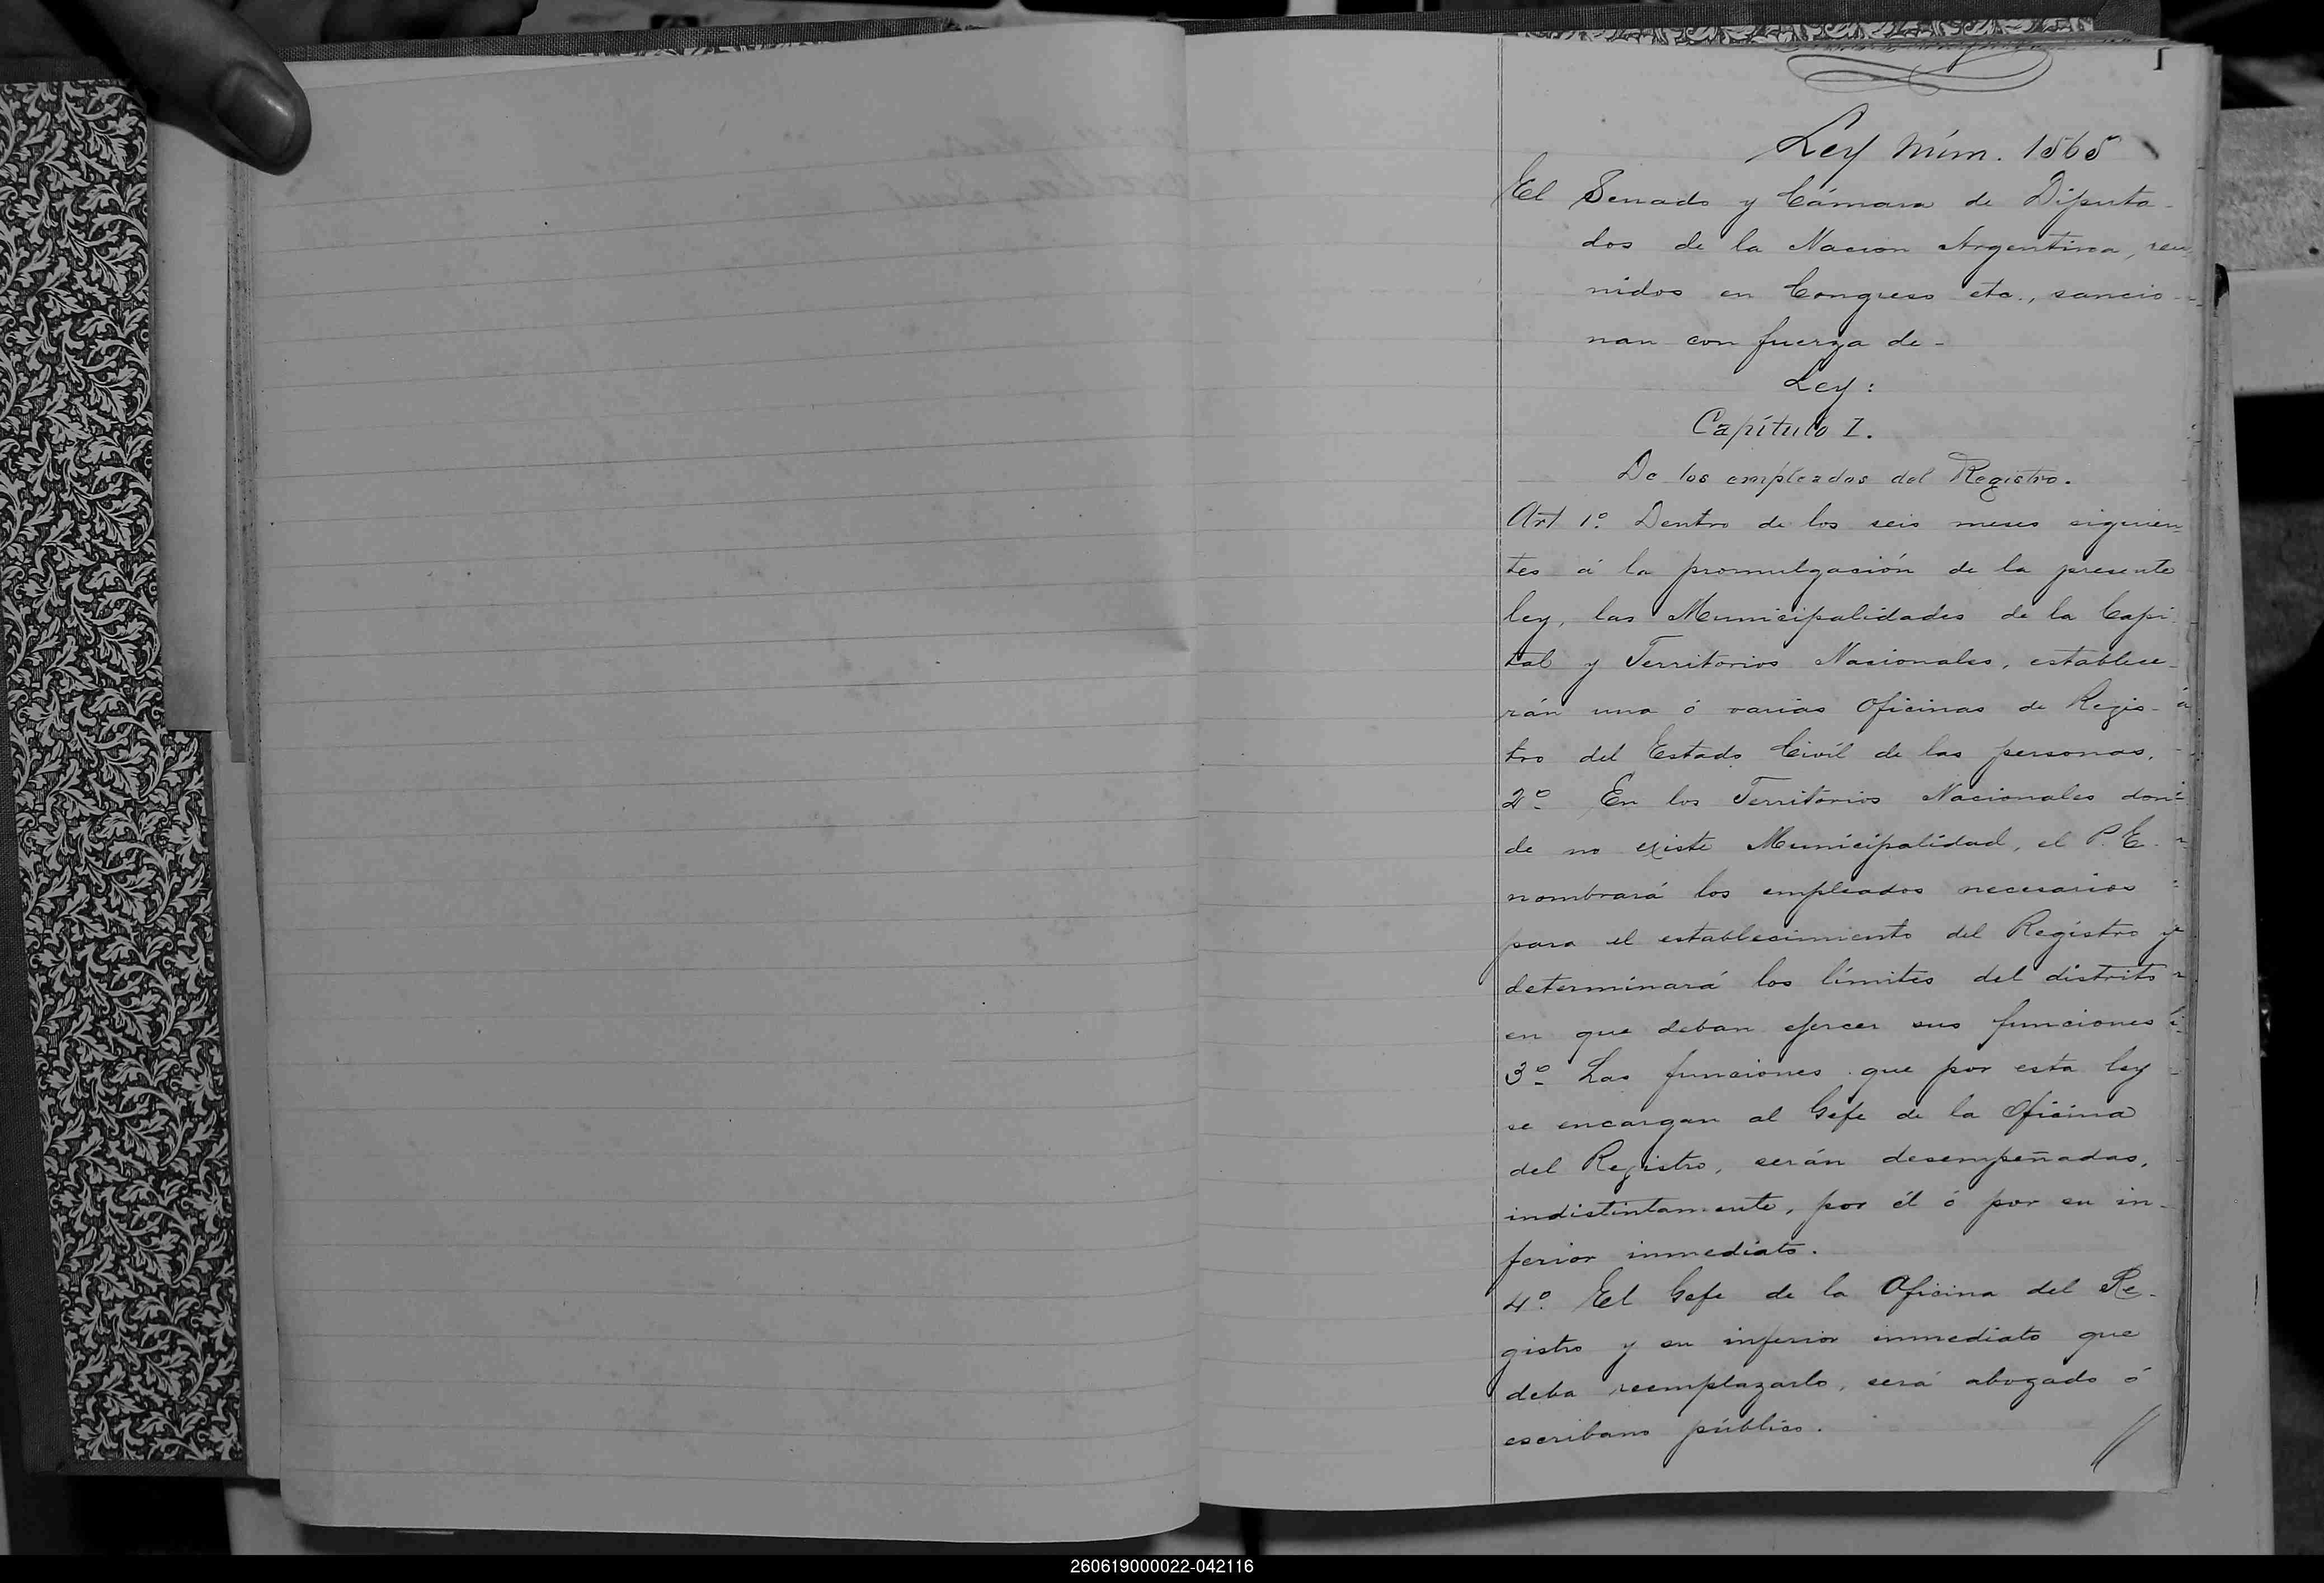 Ley Núm. 1565
El Senado y Cámara de Diputa-
dos de la Nacion Argentina, reu
nidos en Congreso etc., sancio-
nan con fuerza de-
Ley:
Capítulo I.
De los empleados del Registro.
Art 1º. Dentro de los seis meses siguien
tes á la promulgación de la presente
ley, las Municipalidades de la Capi
tal y Territorios Nacionales, establece-
rán una ó varias Oficinas de Regis-
tro del Estado Civil de las personas.
2º En los Territorios Nacionales don-
de no existe Municipalidad, el P. E.
nombrará los empleados necesarios
para el establecimiento del Registro y
determinará los límites del distrito
en que deban ejercer sus funciones
3º Las funciones que por esta ley
se encargan al Gefe de la Oficina
del Registro, serán desempeñadas,
indistintamente, por él ó por su in-
ferior inmediato.
4º. El Gefe de la Oficina del Re-
gistro y su inferior inmediato que
deba reemplazarlo, será abogado ó
escribano público.
260619000022-042116